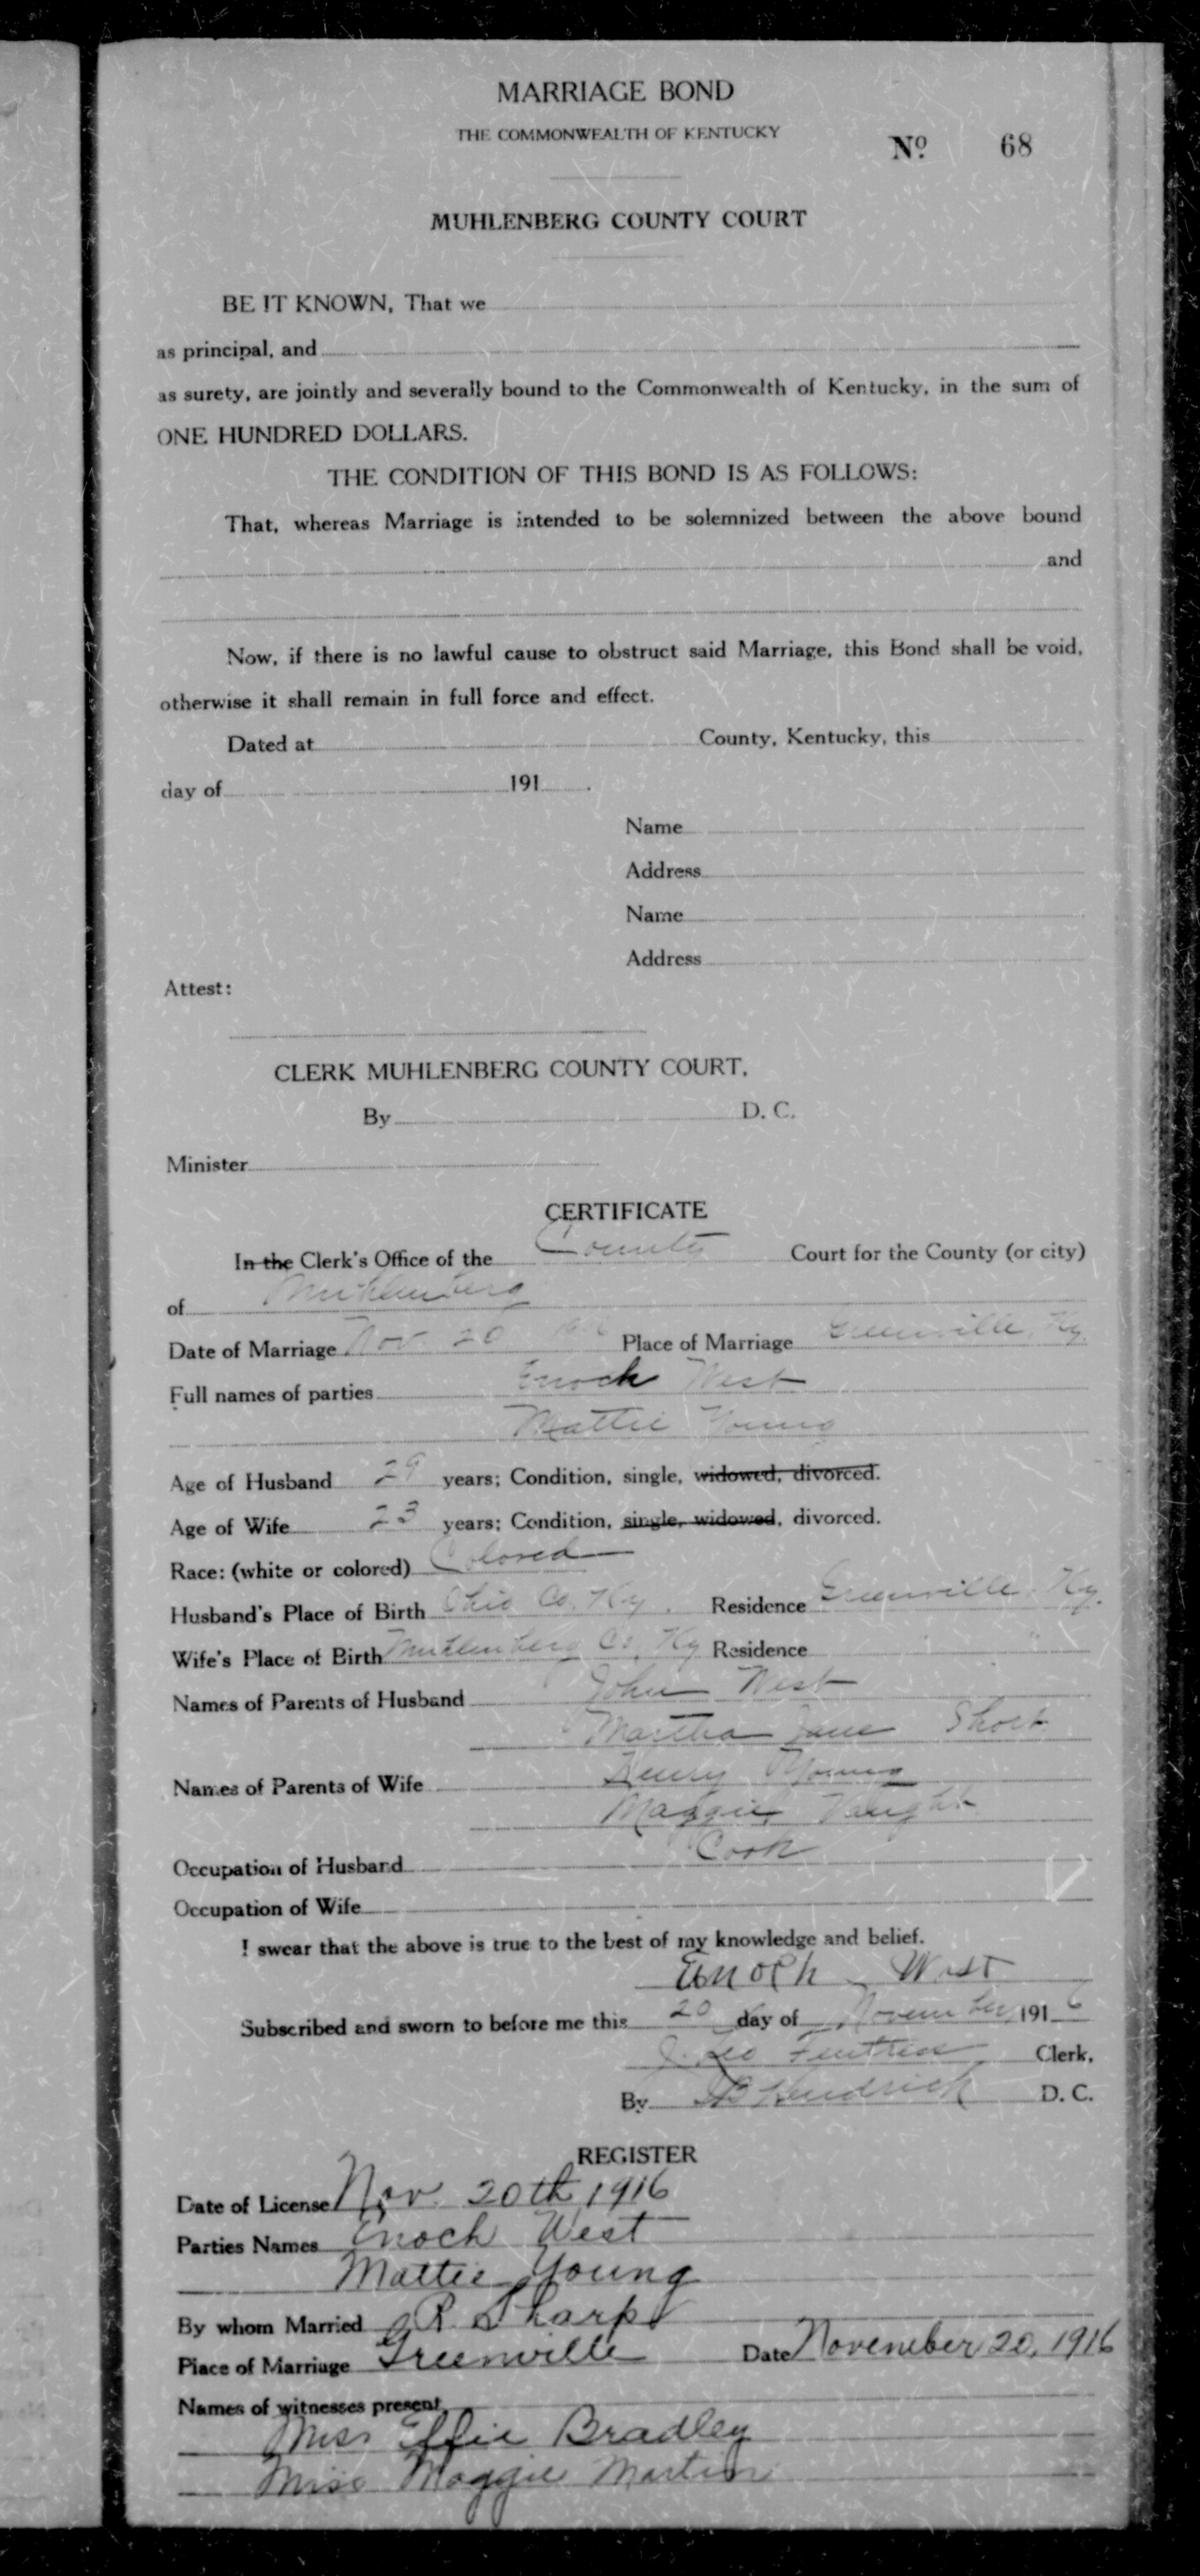 MARRIAGE BOND
THE COMMONWEALTH OF KENTUCKY
No. 68
MUHLENBERG COUNTY COURT
BE IT KNOWN, That we
as principal, and
as surety, are jointly and severally bound to the Commonwealth of Kentucky, in the sum of
ONE HUNDRED DOLLARS.
THE CONDITION OF THIS BOND IS AS FOLLOWS:
That, whereas Marriage is intended to be solemnized between the above bound
and
Now, if there is no lawful cause to obstruct said Marriage, this Bond shall be void,
otherwise it shall remain in full force and effect.
Dated at County, Kentucky, this
day of 191 .
Name
Address
Name
Address
Attest:
CLERK MUHLENBERG COUNTY COURT.
By D. C.
Minister
CERTIFICATE
In the Clerk's Office of the County Court for the County (or city)
of Muhlenberg
Date of Marriage Nov 20 Place of Marriage Greenville, Ky.
Full names of parties Enoch West
Mattie Young
Age of Husband 29 years; Condition, single, widowed, divorced.
Age of Wife 23 years; Condition, single, widowed, divorced.
Race: (white or colored) Colored
Husband's Place of Birth Ohio Co. Ky. Residence Greenville Ky.
Wife's Place of Birth Muhlenberg Co. Ky Residence " "
Names of Parents of Husband John West
Martha Jane Short
Names of Parents of Wife Henry Young
Maggie Vaught
Occupation of Husband Cook
Occupation of Wife
I swear that the above is true to the best of my knowledge and belief.
Enoch West
Subscribed and sworn to before me this 20 day of November 1916
J. Leo Fentress Clerk.
By Kendrick D. C.
REGISTER
Date of License Nov. 20th, 1916
Parties Names Enoch West
Mattie Young
By whom Married R. Sharp
Place of Marriage Greenville Date November 20, 1916
Names of witnesses present
Miss Effie Bradley
Miss Maggie Martin